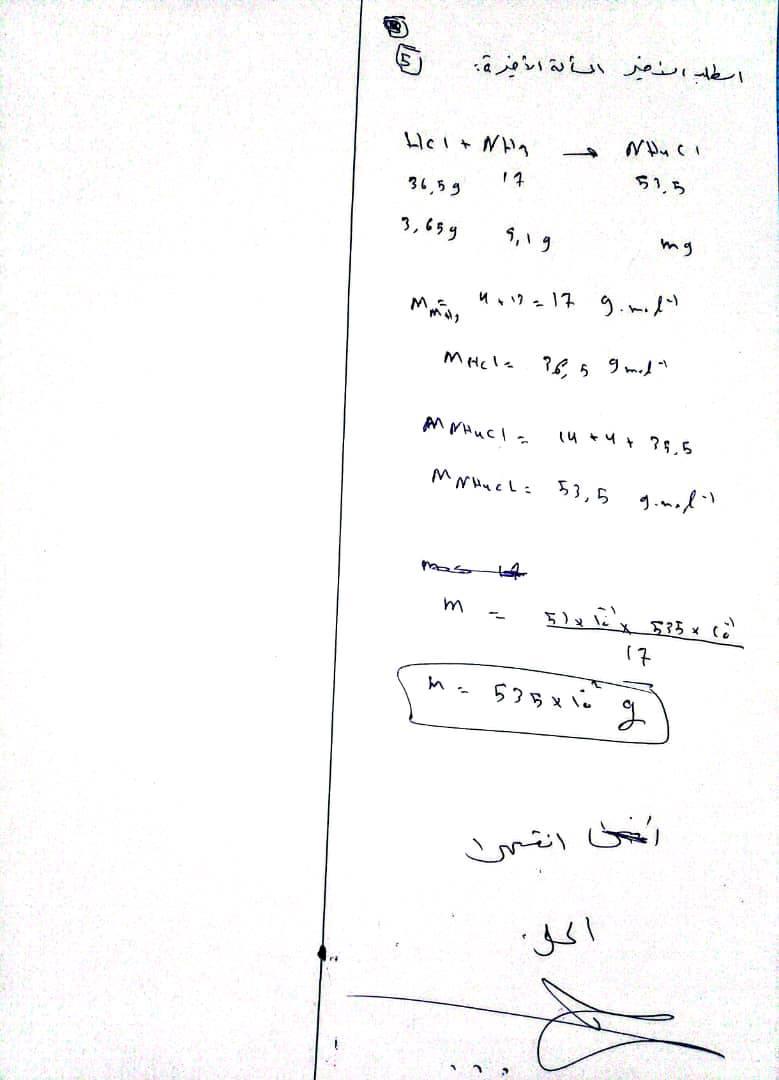 5
الطلب الأخير المسألة الأخيرة:
HCl + NH3 → NH4Cl
36,5g 17 53,5
3,65g 5,1g mg
M NH3 = 17 g.mol-1
MHCl = 36,5 g mol-1
MNH4Cl = 14 + 4 + 35,5
MNH4Cl = 53,5 g.mol-1
m = 51 × 10-1 × 535 × 10-1
17
m = 535 × 10-2 g
انتهى
الحل.